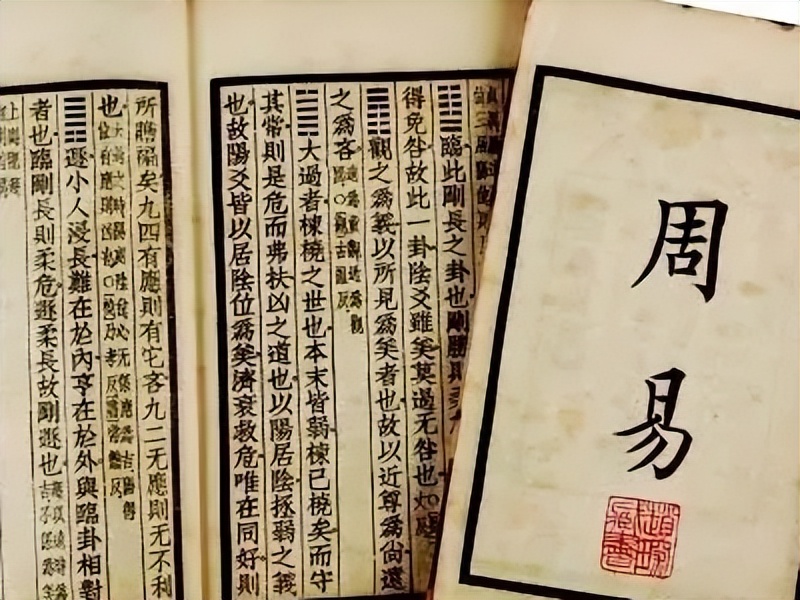 周易
䷒臨此剛長之卦也剛勝則
得免咎故此一卦陰爻雖美莫過无咎也
䷓觀之爲義以所見爲美者也故以近尊爲尚遠
之爲吝
䷛大過者棟橈之世也本末皆弱棟已橈矣而守
其常則是危而弗扶凶之道也以陽居陰拯弱之義
也故陽爻皆以居陰位爲美濟衰救危唯在同好則
所贍褊矣九四有應則有它吝九二无應則无不利
也
䷠遯小人浸長難在於內亨在於外與臨卦相對
者也臨剛長則柔危遯柔長故剛遯也